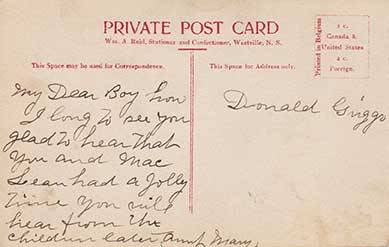 PRIVATE POST CARD
Wm. J. Reid, Stationer and Confectioner, Westville, N. S.
This Space may be used for Correspondence.
This Space for Address only.
Printed in Belgium
1 c.
Canada &
United States
2 c.
Foreign.
My Dear Boy how
I long to see you
glad to hear that
you and Mac
Lean had a Jolly
time you will
hear from the
children later Aunt Mary
Donald Griggs